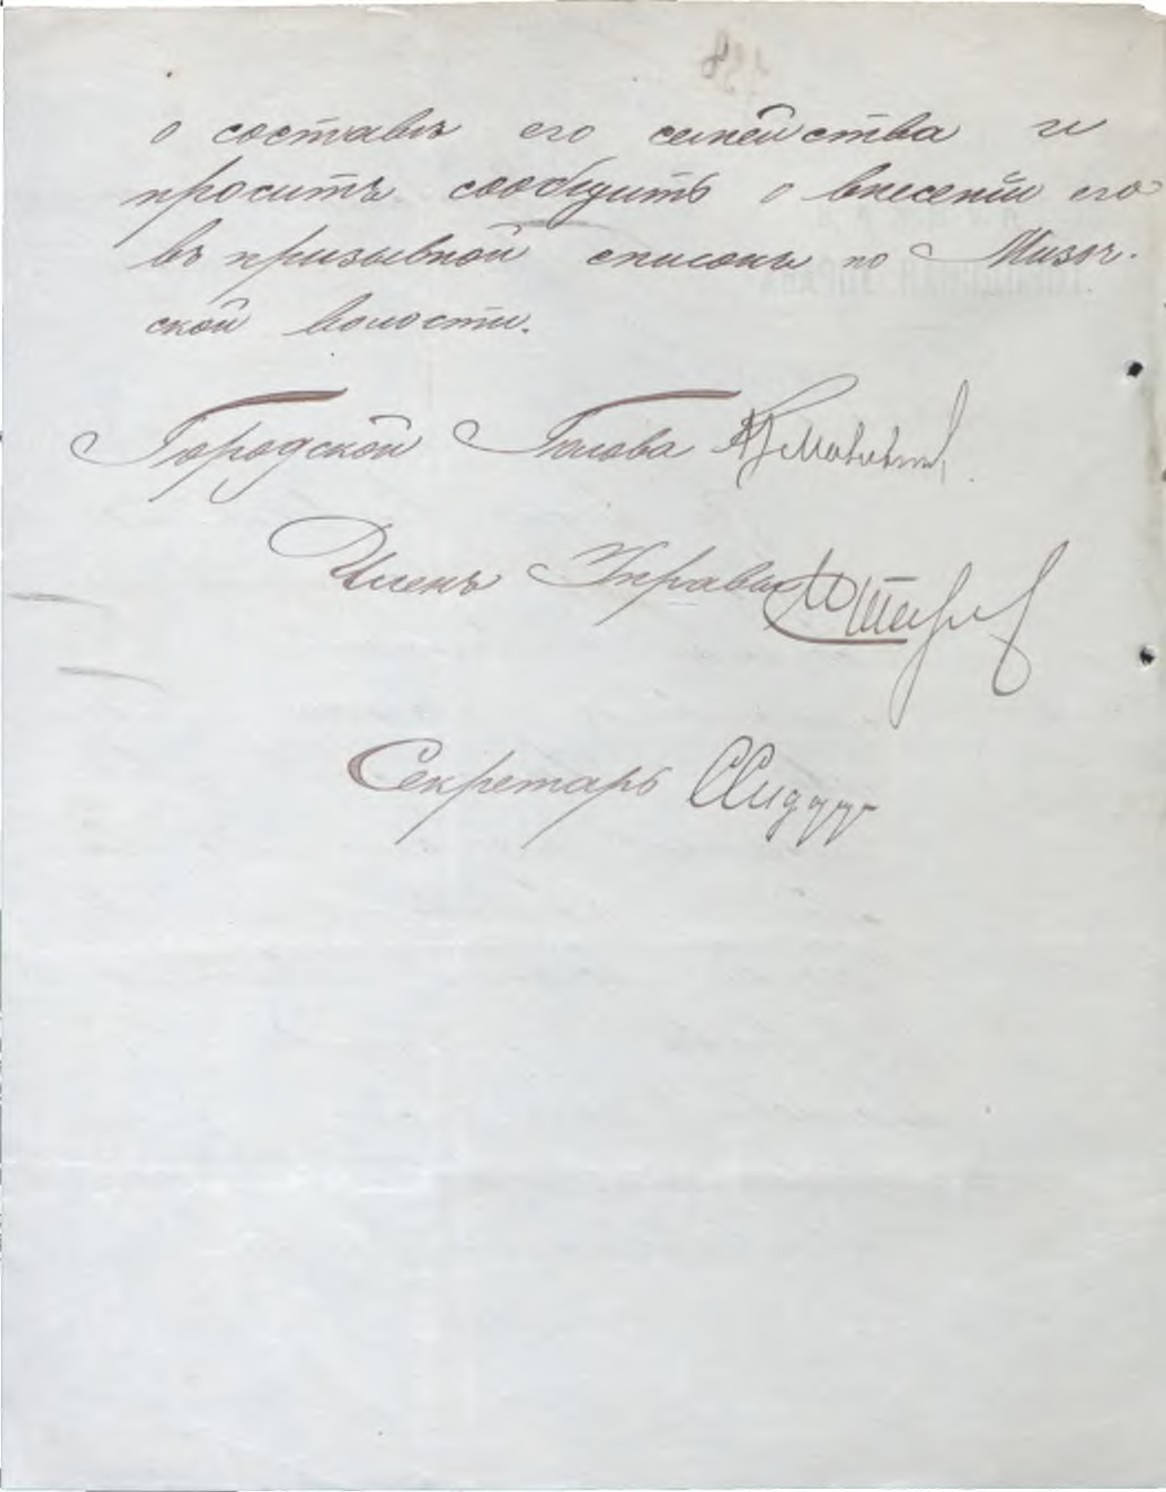 о составѣ его семейства и
проситъ сообщить о внесеніи его
въ призывной списокъ по Мизоч-
ской волости.
Городской Голова
Членъ Управы
Секретарь